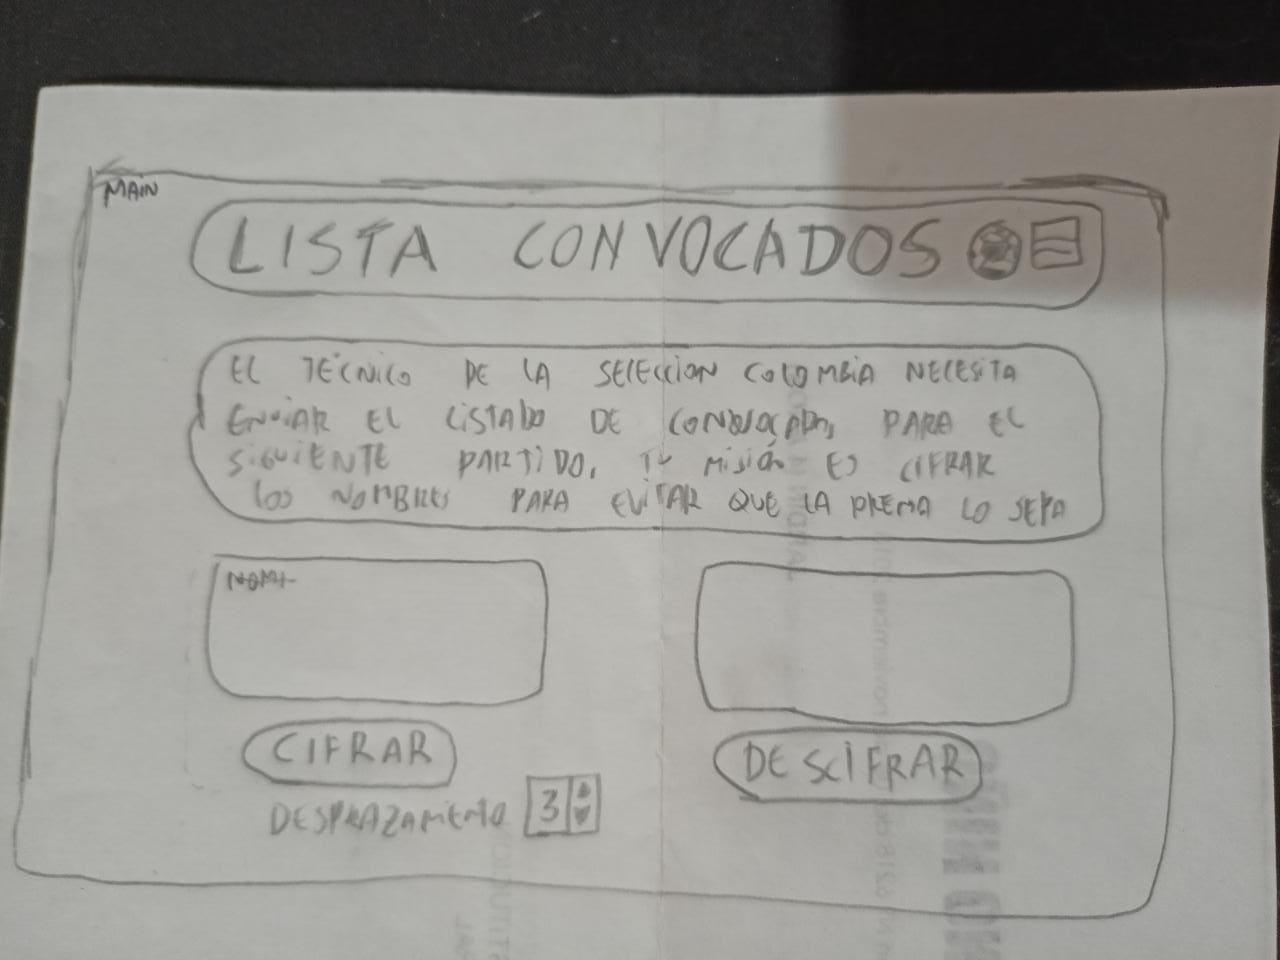 MAIN
LISTA CONVOCADOS
EL TÉCNICO DE LA SELECCION COLOMBIA NECESITA
ENVIAR EL LISTADO DE CONVOCADOS PARA EL
SIGUIENTE PARTIDO. TU MISIÓN ES CIFRAR
LOS NOMBRES PARA EVITAR QUE LA PRENSA LO SEPA
CIFRAR
DESCIFRAR
DESPLAZAMIENTO 3